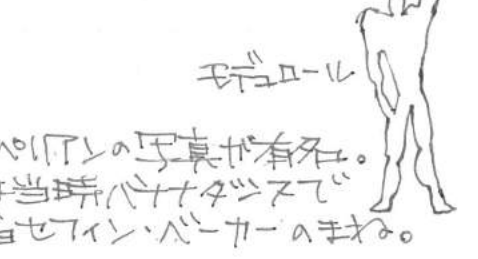 モデュロール
ペリアンの写真が有名。
当時バナナダンスで
セフィン・ベーカーのまね。